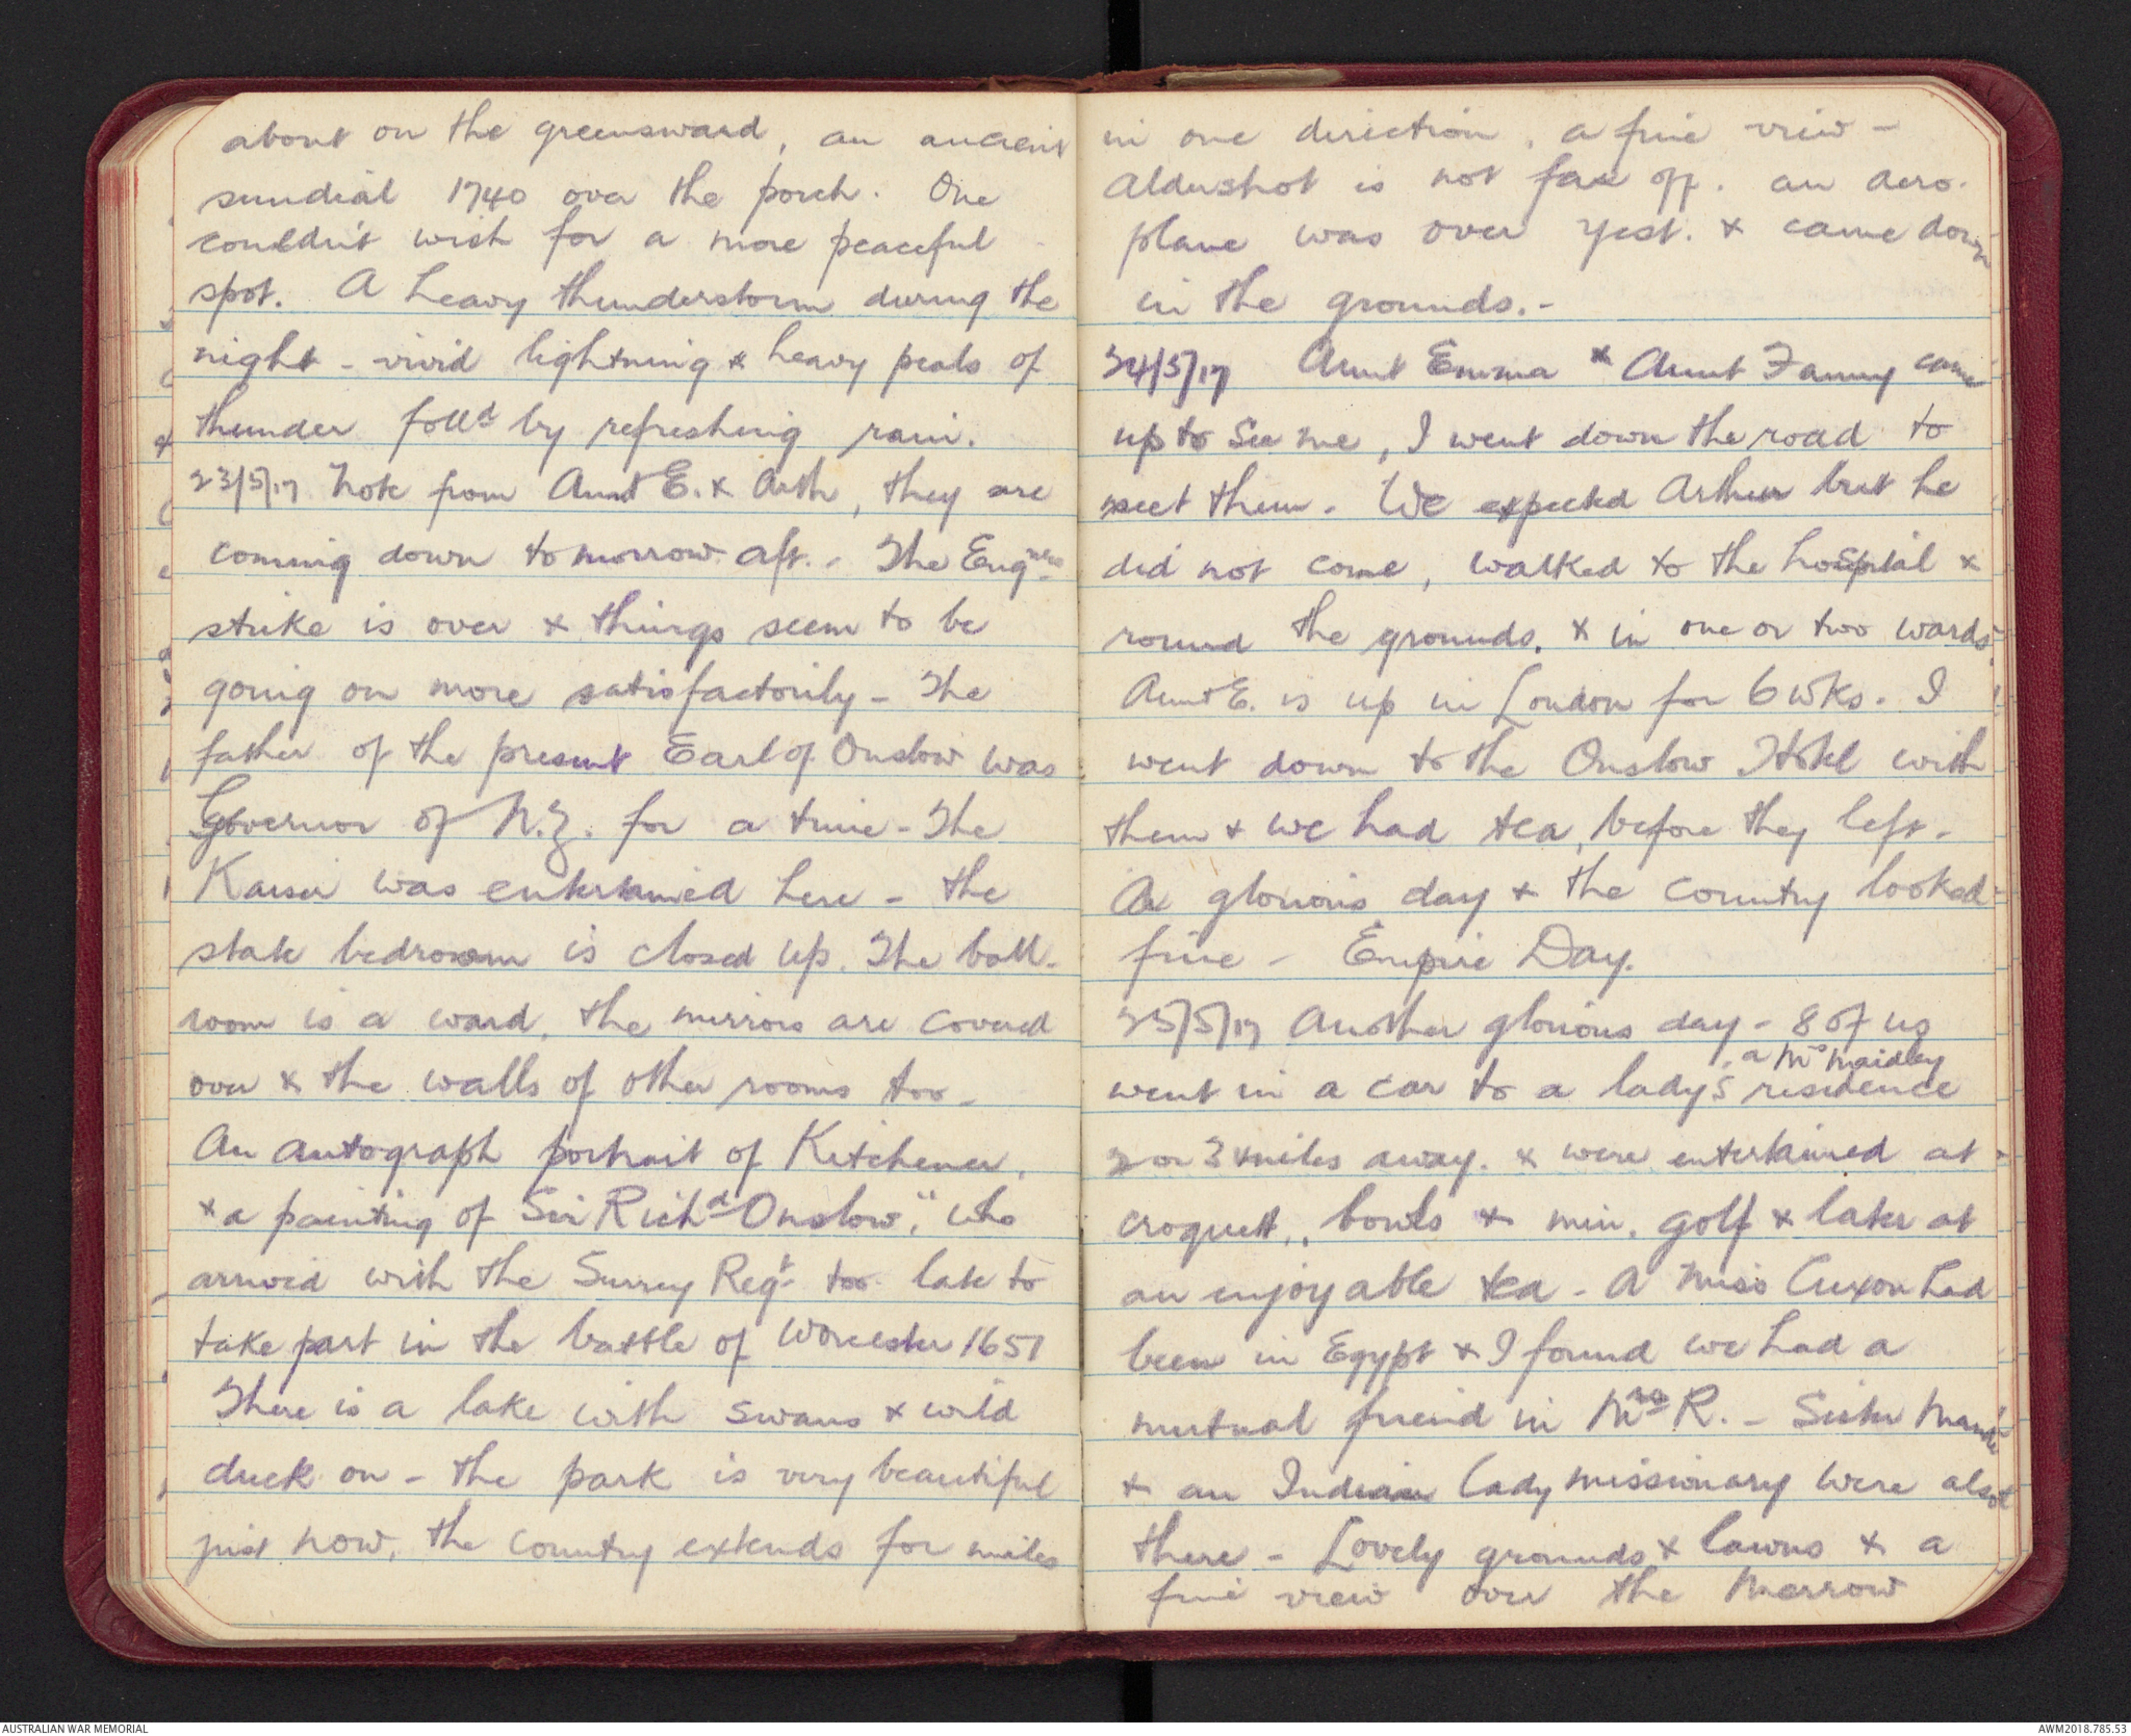 about on the greensward, an ancient
sundial 1740 over the porch. One
couldn't wish for a more peaceful
spot. A heavy thunderstorm during the
night - vivid lightning & heavy peals of
thunder foll^d by refreshing rain.
23/5/17 Note from Aunt E. & Arth, they are
coming down tomorrow aft. - The Eng^neers
strike is over & things seem to be
going on more satisfactorily - The
father of the present Earl of Onslow was
Governor of N.Z. for a time - The
Kaiser was entertained here - the
state bedroom is closed up. The ball-
room is a ward, the mirrors are covered
over & the walls of other rooms too -
An autograph portrait of Kitchener,
& a painting of Sir Rich^d Onslow," who
arrived with the Surrey Reg^t. too late to
take part in the battle of Worcester 1651
There is a lake with swans & wild
duck on - the park is very beautiful
just now, the country extends for miles
in one direction, a fine view -
Aldershot is not far off. an aero-
plane was over yest. & came down
in the grounds. -
24/5/17 Aunt Emma & Aunt Fanny came
up to see me, I went down the road to
meet them. We expected Arthur but he
did not come, walked to the hospital &
round the grounds, & in one or two wards.
Aunt E. is up in London for 6 wks. I
went down to the Onslow Hotel with
them & we had tea, before they left.
A glorious day & the country looked
fine - Empire Day.
25/5/17 Another glorious day - 8 of us
went in a car to a lady's residence
a M^rs
2 or 3 miles away. & were entertained at
croquett, bowls & min. golf & later at
an enjoyable tea - A Miss had
been in Egypt & I found we had a
mutual friend in M^rs R. - Sister
& an Indian lady missionary were also
there - Lovely grounds & lawns & a
fine view over the Merrow
AUSTRALIAN WAR MEMORIAL
AWM2018.785.53